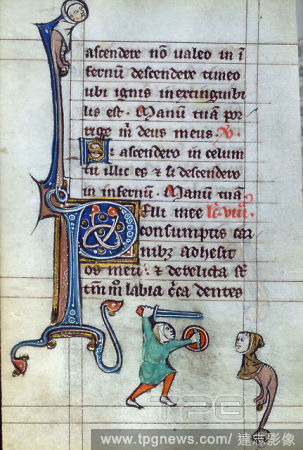 ascendere nō valeo in i
fernū descendere timeo
ubi ignis inextinguibi
lis est. Manū tuā por
rige m̄ deus meus R.
Si ascendero in celum
tu illic es & si descendero
in infernū. Manū tuā
Pelli mee lc̄. viii.
consumptis car
nibȝ adhesit
os meū. & derelicta st̄
tm̄ m̄ labia c̄ca dentes
TPG
www.tpgnews.com / 達志影像